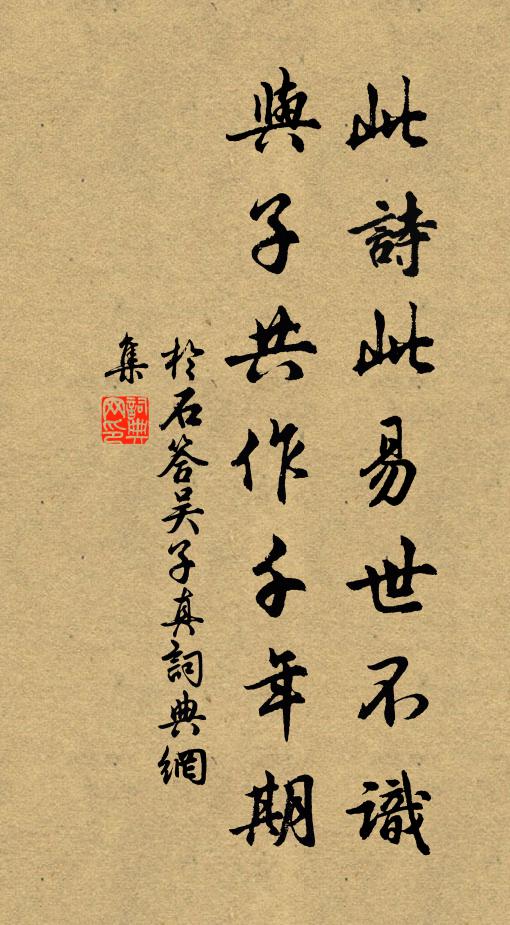 此詩此易世不識
與子共作千年期
於石答吴子真詞典網
集
詞典
网印